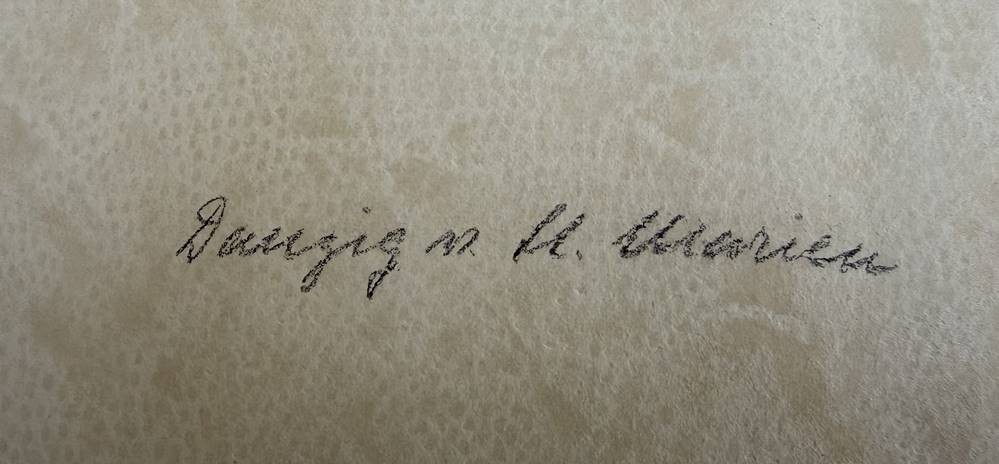 Danzig v. St. Marien